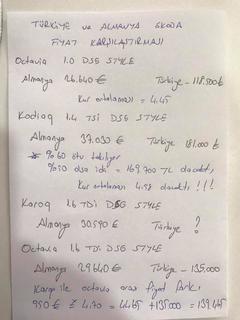 TÜRKİYE ve ALMANYA SKODA
FİYAT KARŞILAŞTIRMASI
Octavia 1.0 DSG STYLE
Almanya 26.640 € Türkiye - 118.500 ₺
Kur ortalaması = 4.45
Kodiaq 1.4 TSİ DSG STYLE
Almanya 37.030 € Türkiye 181.000 ₺
* %60 ötv takılıyor
%50 olsa idi = 169.700 TL olacaktı,
Kur ortalaması 4.58 olacaktı !!!
Karoq 1.6 TDİ DSG STYLE
Almanya 30.590 € Türkiye ?
Octavia 1.6 TDİ DSG STYLE
Almanya 29.640 € Türkiye - 135.000
Karoq ile octavia arası fiyat farkı
950 € x 4.70 = 4465 + 135.000 = 139.465